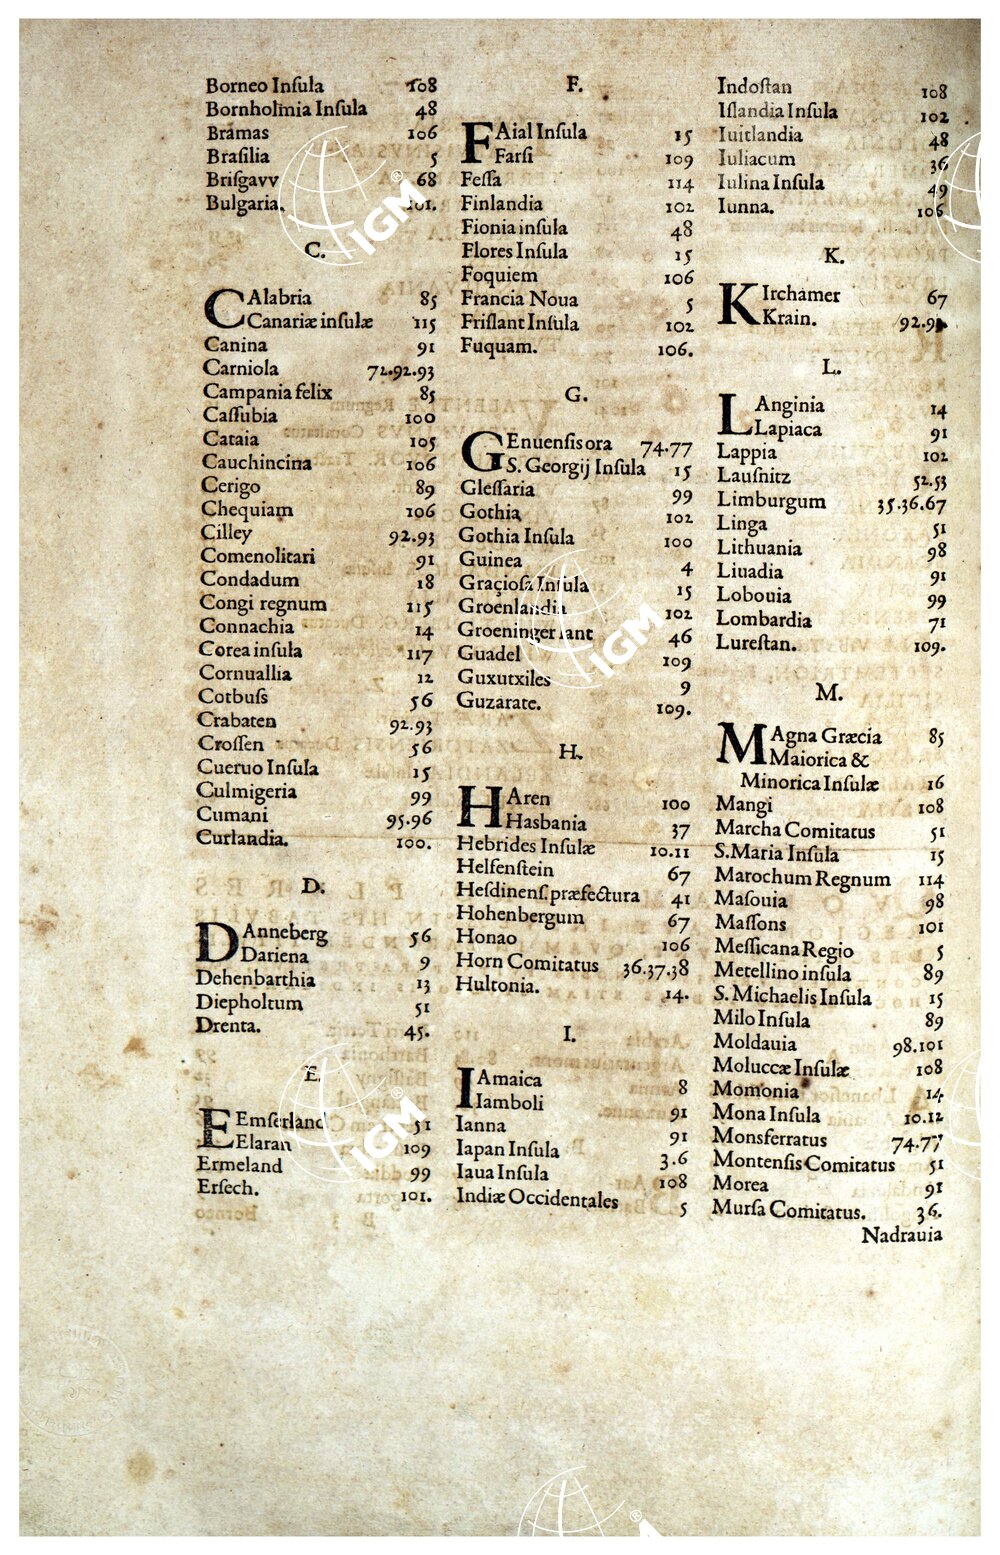 Borneo Inſula 108
Bornholmia Inſula 48
Bramas 106
Braſilia 5
Briſgavv 68
Bulgaria. 101.
C.
CAlabria 85
Canariæ inſulæ 115
Canina 91
Carniola 72.92.93
Campania felix 85
Caſſubia 100
Cataia 105
Cauchincina 106
Cerigo 89
Chequiam 106
Cilley 92.93
Comenolitari 91
Condadum 18
Congi regnum 115
Connachia 14
Corea inſula 117
Cornuallia 12
Cotbuſs 56
Crabaten 92.93
Croſſen 56
Cueruo Inſula 15
Culmigeria 99
Cumani 95.96
Curlandia. 100.
D.
DAnneberg 56
Dariena 9
Dehenbarthia 13
Diepholtum 51
Drenta. 45.
E.
EEmſerland 51
Elaran 109
Ermeland 99
Erſech. 101.
F.
FAial Inſula 15
Farſi 109
Feſſa 114
Finlandia 102
Fionia inſula 48
Flores Inſula 15
Foquiem 106
Francia Noua 5
Friſlant Inſula 102
Fuquam. 106.
G.
GEnuenſis ora 74.77
S. Georgij Inſula 15
Gleſſaria 99
Gothia 102
Gothia Inſula 100
Guinea 4
Graçioſa Inſula 15
Groenlandia 102
Groeningerlant 46
Guadel 109
Guxutxiles 9
Guzarate. 109.
H.
HAren 100
Hasbania 37
Hebrides Inſulæ 10.11
Helfenſtein 67
Heſdinenſ. præfectura 41
Hohenbergum 67
Honao 106
Horn Comitatus 36.37.38
Hultonia. 14.
I.
IAmaica 8
Iamboli 91
Ianna 91
Iapan Inſula 3.6
Iaua Inſula 108
Indiæ Occidentales 5
Indoſtan 108
Iſlandia Inſula 102
Iuitlandia 48
Iuliacum 36
Iulina Inſula 49
Iunna. 106
K.
KIrchamer 67
Krain. 92.93
L.
LAnginia 14
Lapiaca 91
Lappia 102
Lauſnitz 52.53
Limburgum 35.36.67
Linga 51
Lithuania 98
Liuadia 91
Lobouia 99
Lombardia 71
Lureſtan. 109.
M.
MAgna Græcia 85
Maiorica &
Minorica Inſulæ 16
Mangi 108
Marcha Comitatus 51
S. Maria Inſula 15
Marochum Regnum 114
Maſouia 98
Maſſons 101
Meſſicana Regio 5
Metellino inſula 89
S. Michaelis Inſula 15
Milo Inſula 89
Moldauia 98.101
Moluccæ Inſulæ 108
Momonia 14
Mona Inſula 10.12
Monsferratus 74.77
Montenſis Comitatus 51
Morea 91
Murſa Comitatus. 36.
Nadrauia
IGM
IGM
IGM